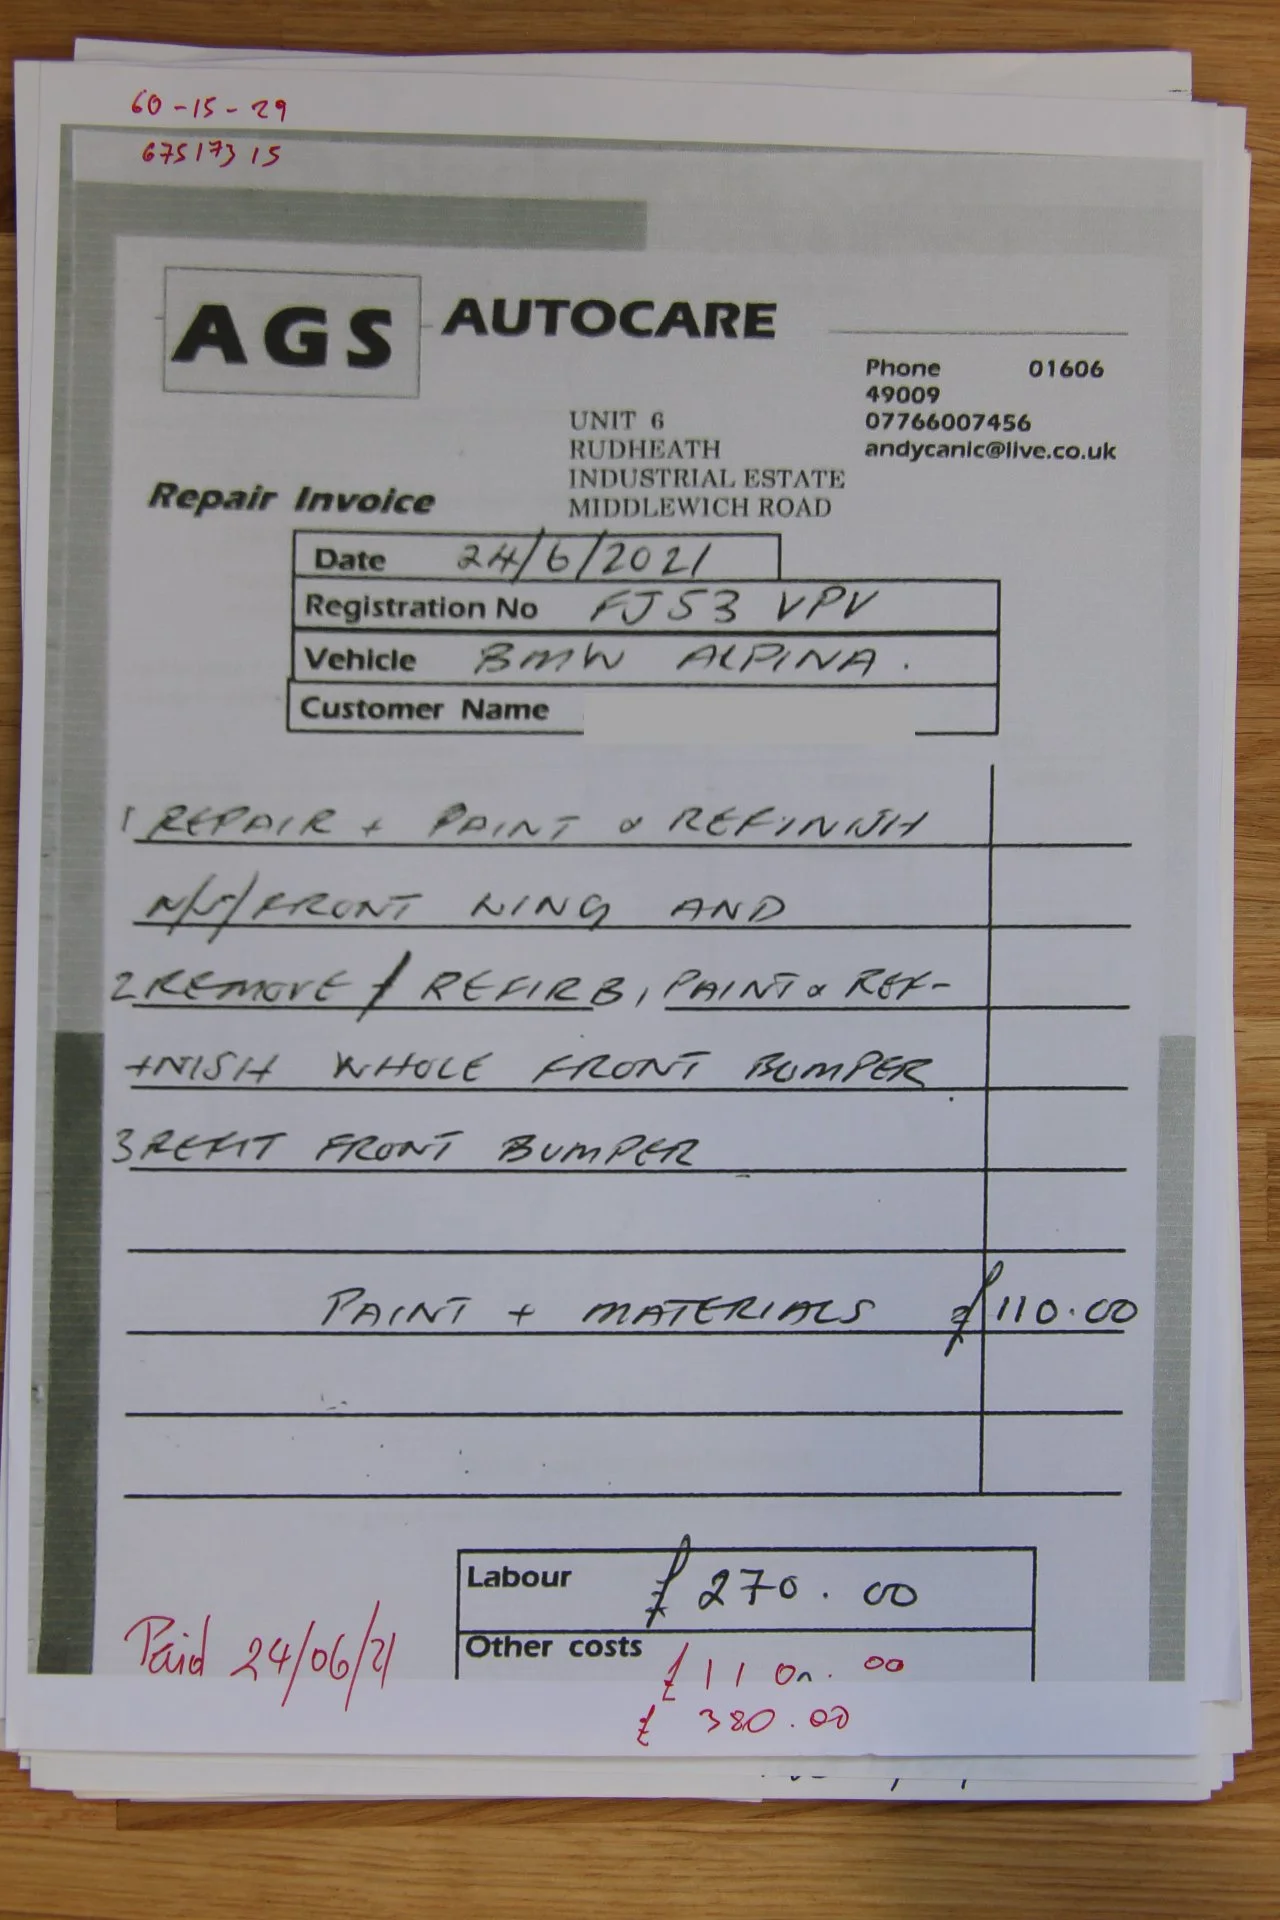 60-15-29
67517315
AGS AUTOCARE
Phone 01606
49009
07766007456
andycanic@live.co.uk
UNIT 6
RUDHEATH
INDUSTRIAL ESTATE
MIDDLEWICH ROAD
Repair Invoice
Date 24/6/2021
Registration No FJ53 VPV
Vehicle BMW ALPINA.
Customer Name
1 REPAIR + PAINT & REFINISH
N/S/FRONT WING AND
2 REMOVE / REFIRB, PAINT & REF-
INISH WHOLE FRONT BUMPER
3 REFIT FRONT BUMPER
PAINT + MATERIALS £110.00
Labour £270.00
Other costs £110.00
Paid 24/06/21
£ 380.00